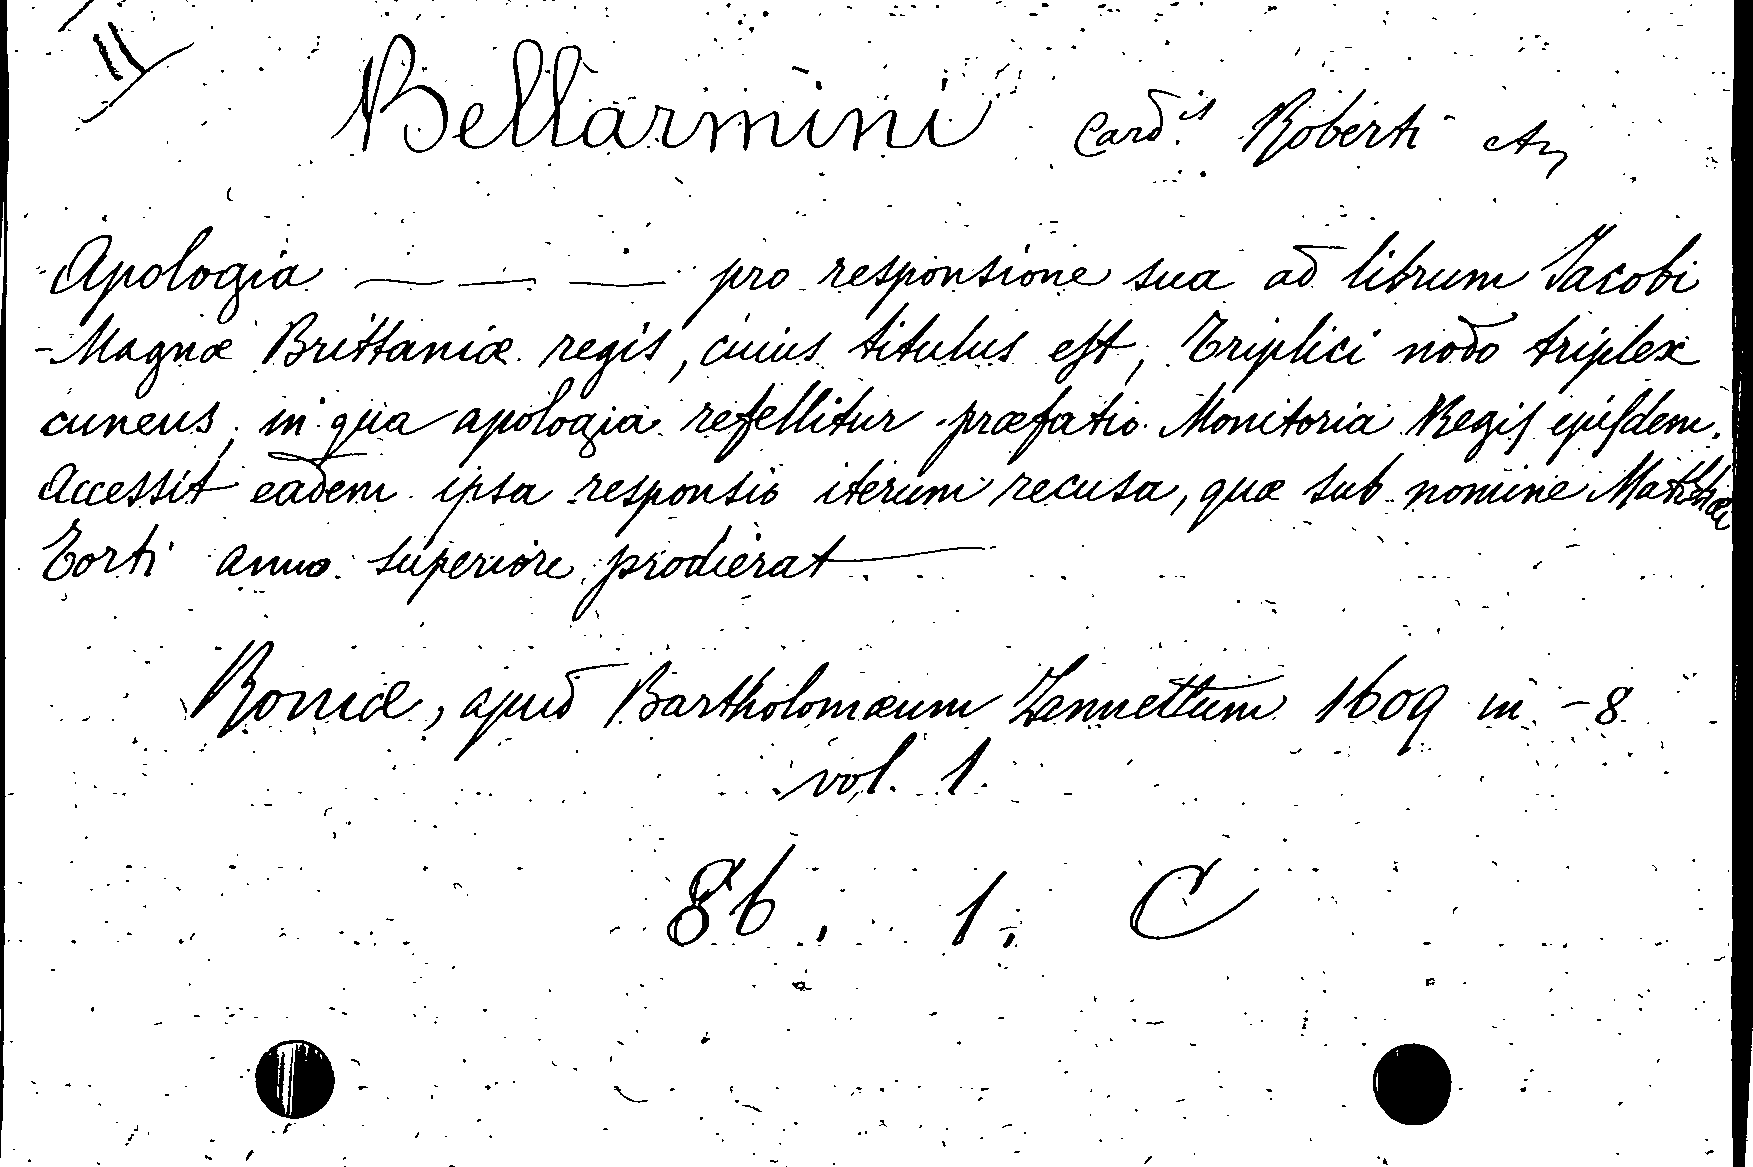 11
Bellarmini Card.is Roberti
Apologia — — — pro responsione sua ad librum Jacobi
Magnæ Brittaniæ regis, cuius titulus est, Triplici nodo triplex
cuneus, in qua apologia refellitur præfatio Monitoria Regis ejusdem.
Accessit eadem ipsa responsio iterum recusa, quæ sub nomine Matthæi
Torti anno superiore prodierat —
Romæ, apud Bartholomæum Zannettum 1609 in -8
vol. 1.
86. 1. C